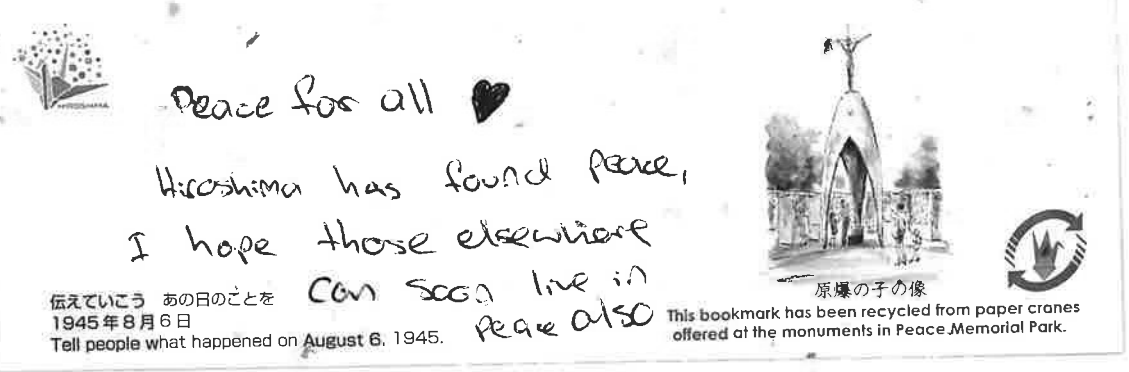 HIROSHIMA
Peace for all ♥
Hiroshima has found peace,
I hope those elsewhere
can soon live in
peace also
伝えていこう あの日のことを
1945年8月6日
Tell people what happened on August 6, 1945.
原爆の子の像
This bookmark has been recycled from paper cranes
offered at the monuments in Peace Memorial Park.